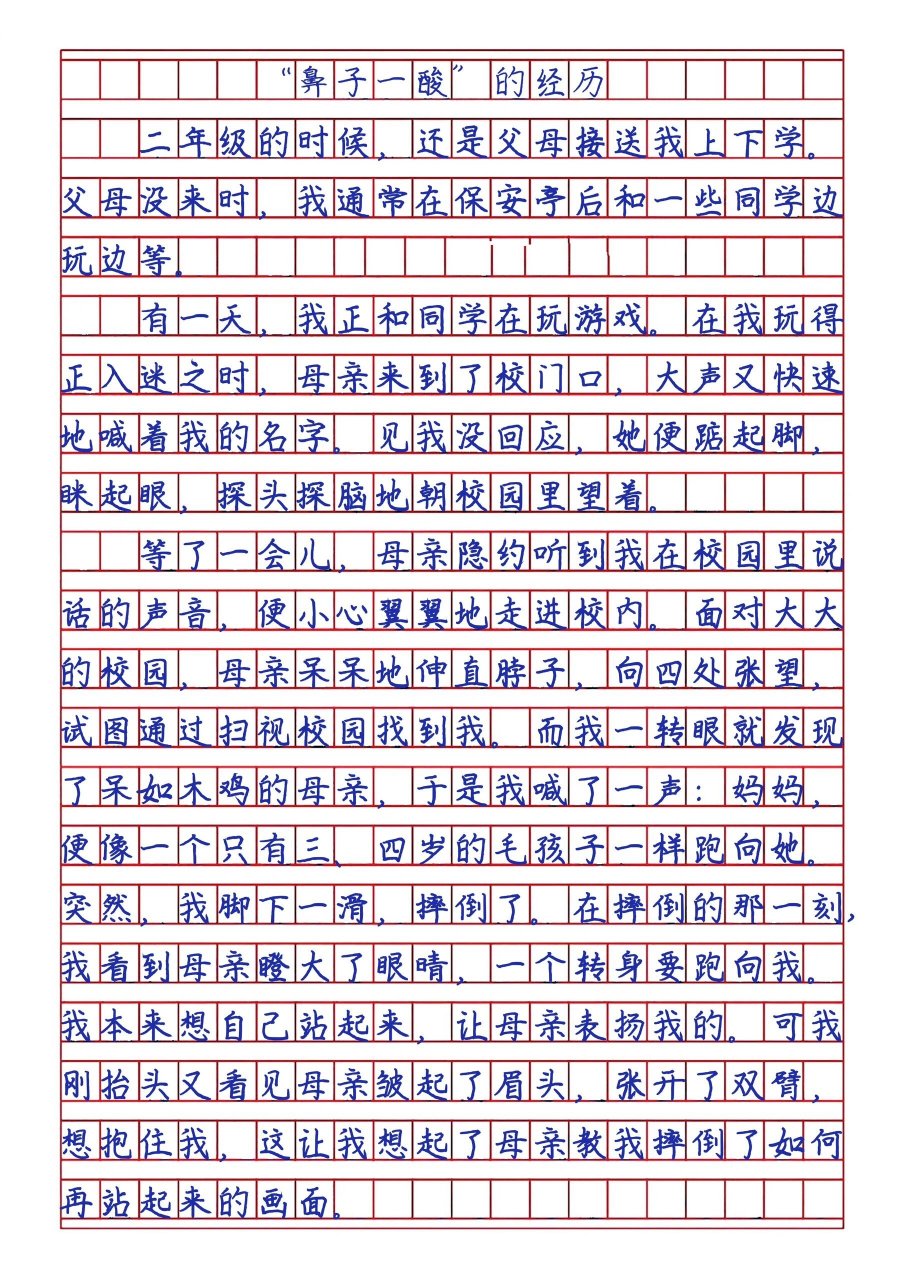 “鼻子一酸”的经历
二年级的时候，还是父母接送我上下学。
父母没来时，我通常在保安亭后和一些同学边
玩边等。
有一天，我正和同学在玩游戏。在我玩得
正入迷之时，母亲来到了校门口，大声又快速
地喊着我的名字。见我没回应，她便踮起脚，
眯起眼，探头探脑地朝校园里望着。
等了一会儿，母亲隐约听到我在校园里说
话的声音，便小心翼翼地走进校内。面对大大
的校园，母亲呆呆地伸直脖子，向四处张望，
试图通过扫视校园找到我。而我一转眼就发现
了呆如木鸡的母亲，于是我喊了一声：妈妈，
便像一个只有三、四岁的毛孩子一样跑向她。
突然，我脚下一滑，摔倒了。在摔倒的那一刻，
我看到母亲瞪大了眼睛，一个转身要跑向我。
我本来想自己站起来，让母亲表扬我的。可我
刚抬头又看见母亲皱起了眉头，张开了双臂，
想抱住我，这让我想起了母亲教我摔倒了如何
再站起来的画面。